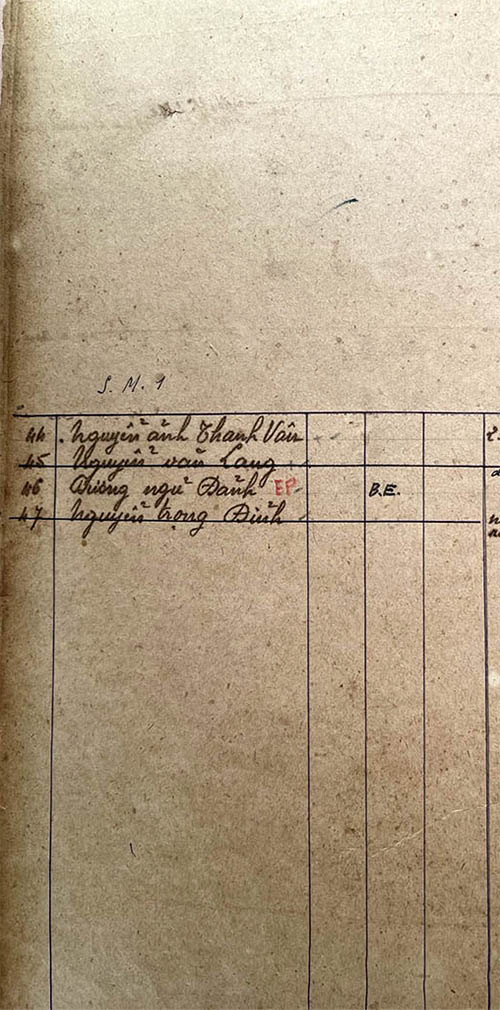 S. M. 1
44 . Nguyễn ảnh Thanh Vân
45 Nguyễn văn Lang
46 Dương ngư Đảnh EP B.E.
47 Nguyễn trọng Đỉnh